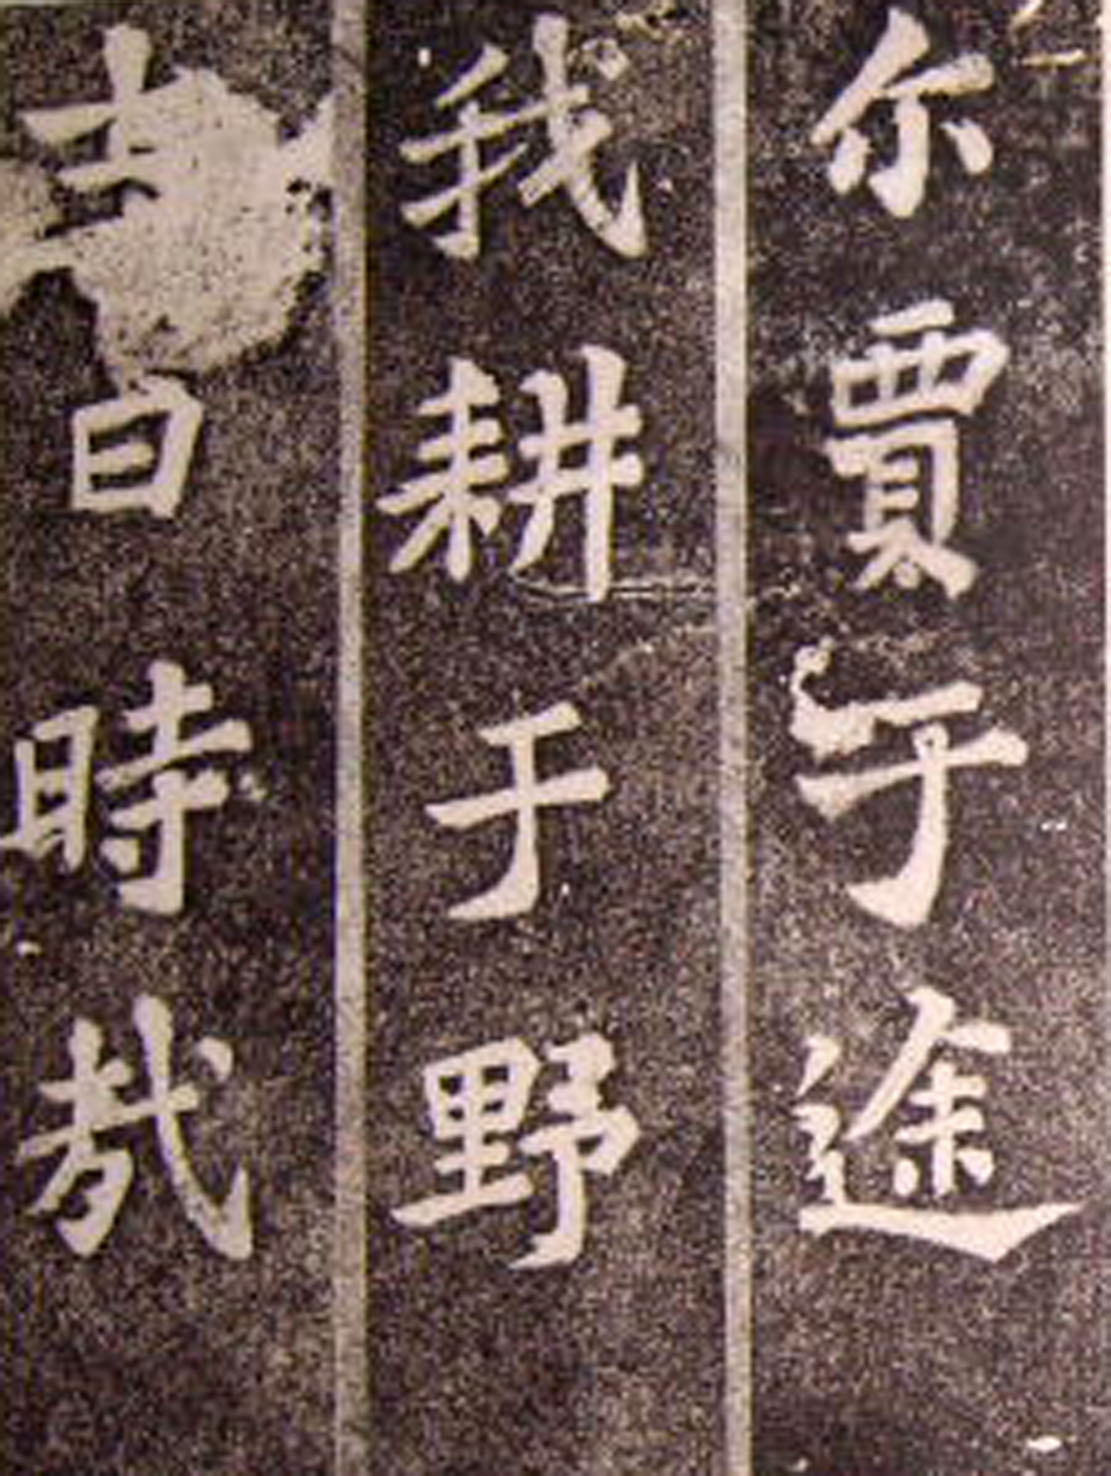 尔賈于途
我耕于野
曰時哉